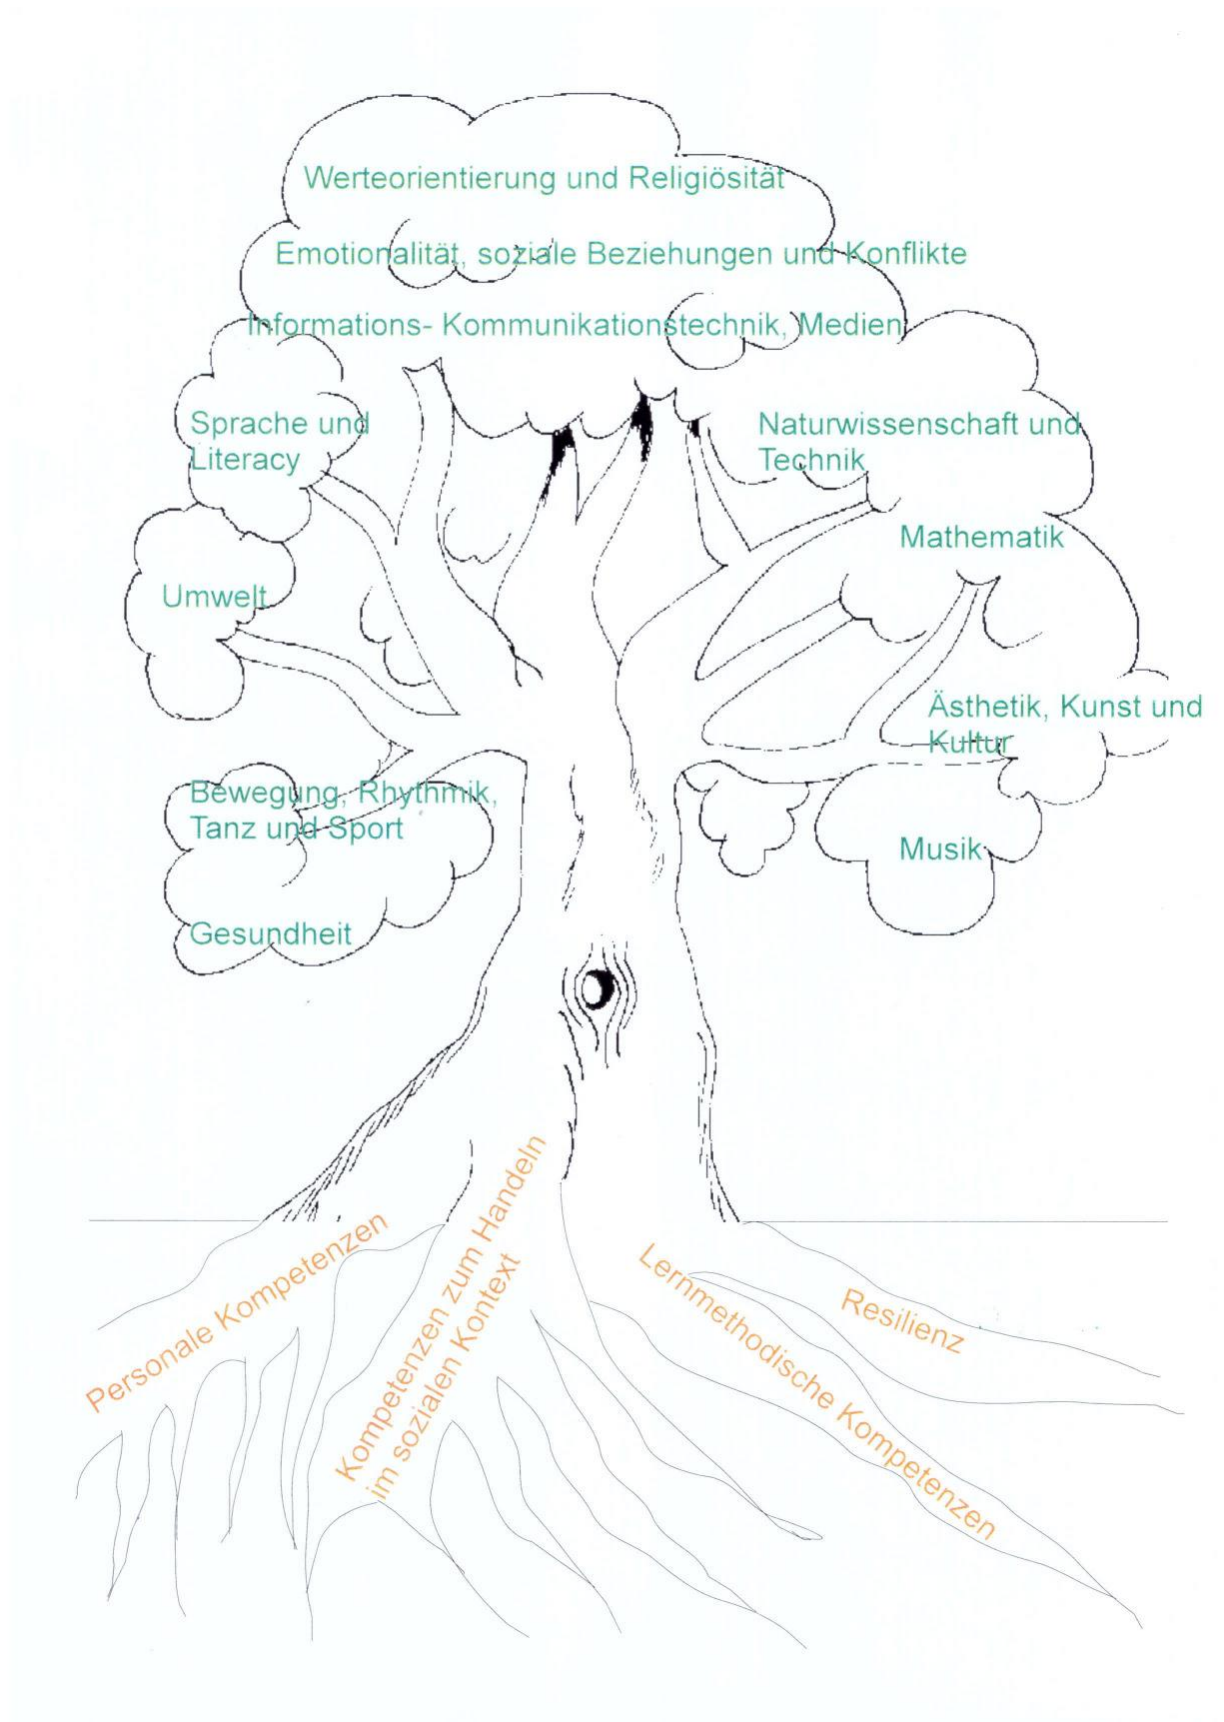 Werteorientierung und Religiösität
Emotionalität, soziale Beziehungen und Konflikte
Informations- Kommunikationstechnik, Medien
Sprache und
Literacy
Naturwissenschaft und
Technik
Mathematik
Umwelt
Ästhetik, Kunst und
Kultur
Bewegung, Rhythmik,
Tanz und Sport
Musik
Gesundheit
Personale Kompetenzen
Kompetenzen zum Handeln
im sozialen Kontext
Lernmethodische Kompetenzen
Resilienz